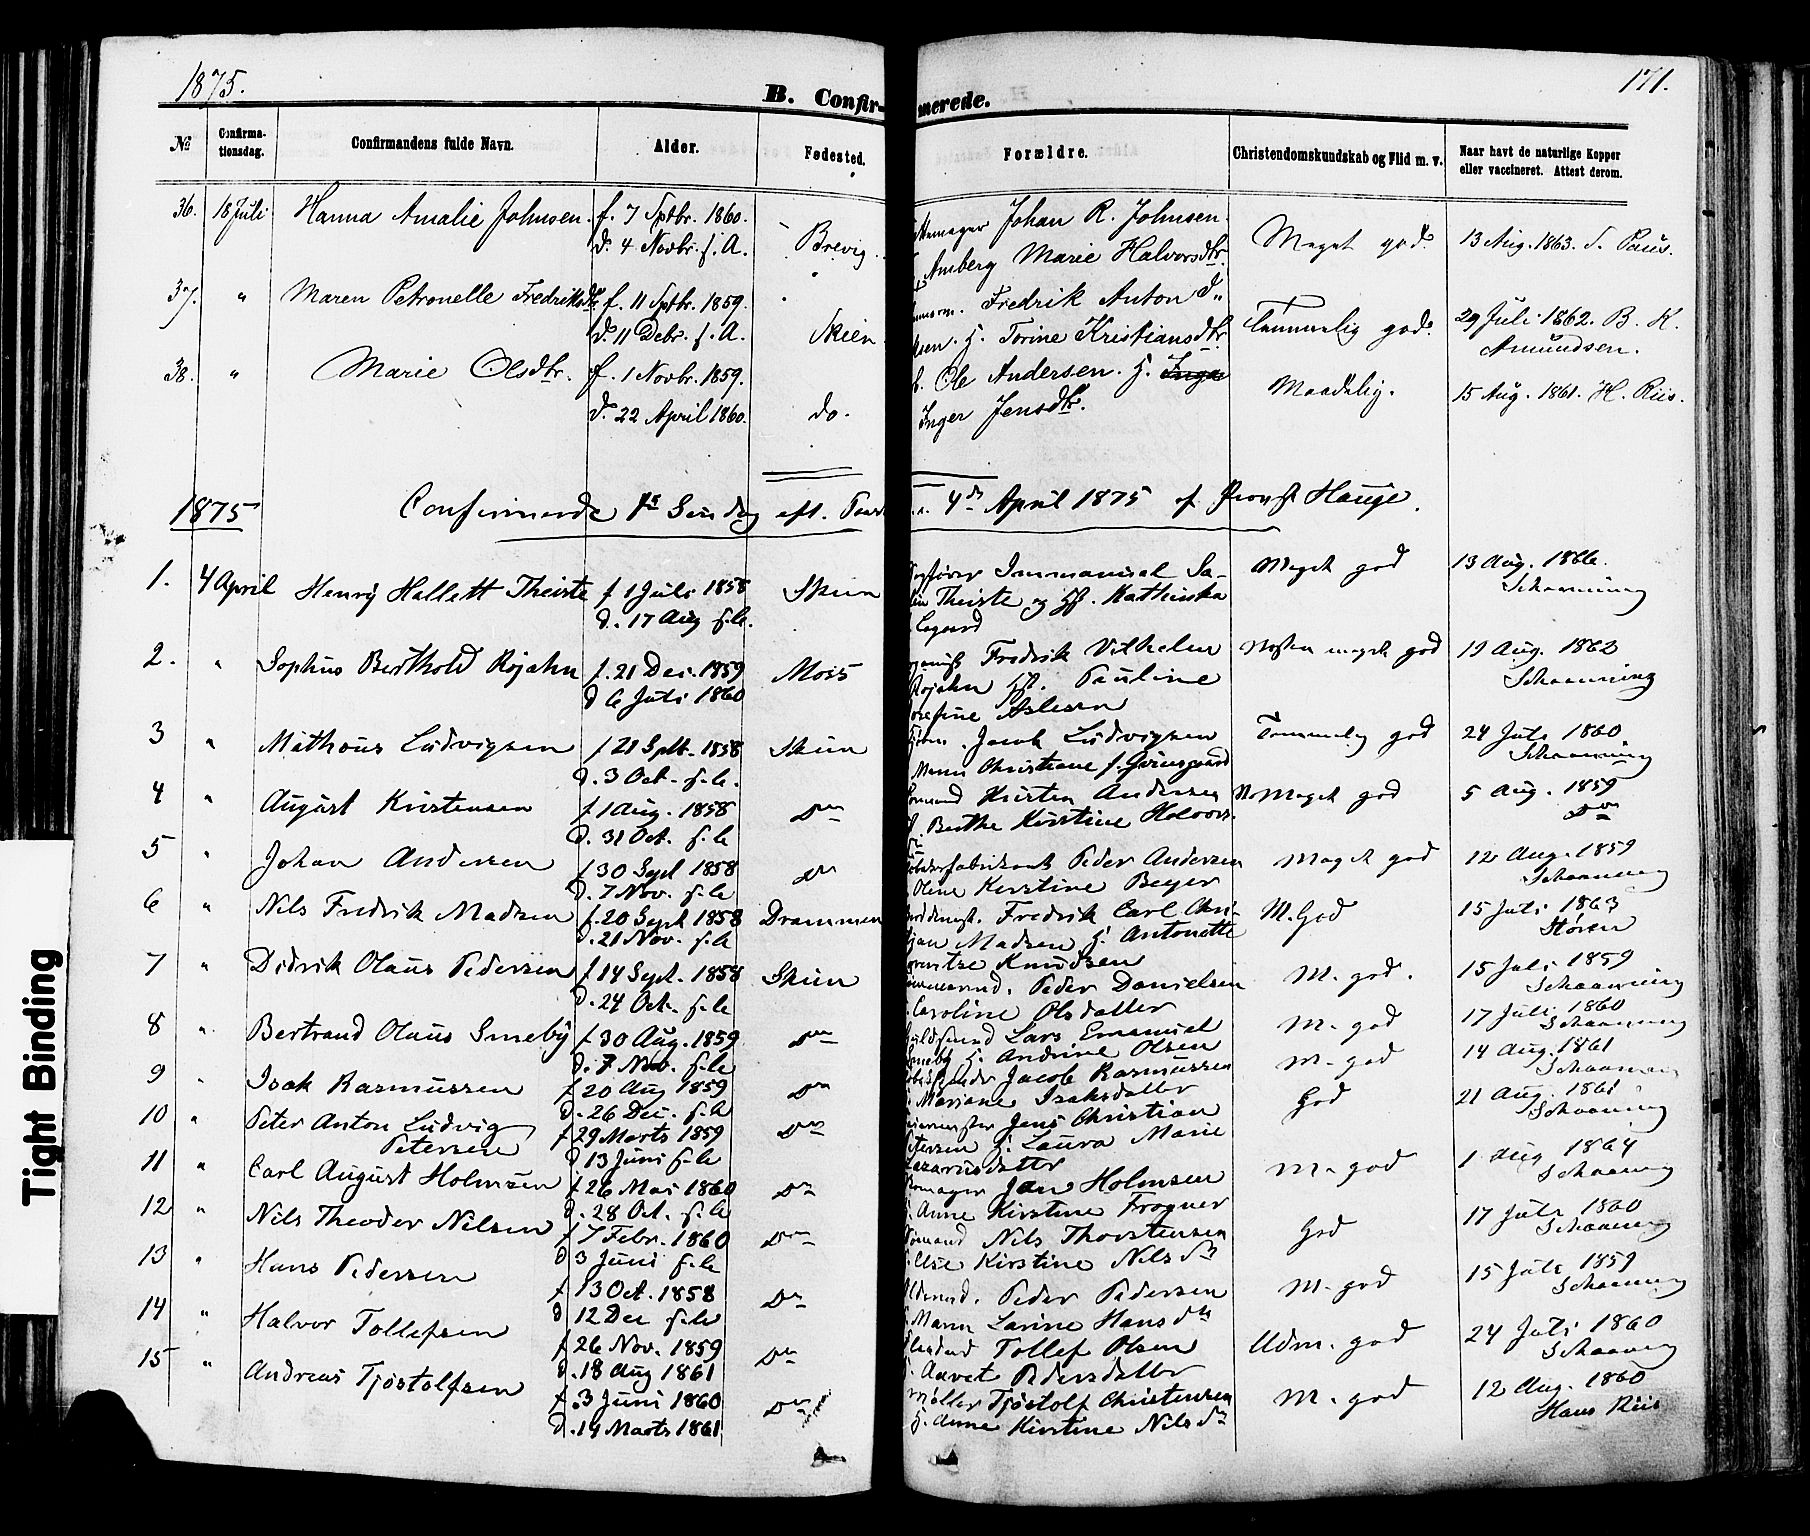 1875.
171.
B. Confir- merede.
No Confirma-tionsdag. Confirmandens fulde Navn. Alder. Fødested. Forældre. Christendomskundskab og Flid m. v. Naar havt de naturlige Kopper eller vaccineret. Attest derom.
36. 18 Juli Hanna Amalie Johnsen. f. 7 Sptbr. 1860. Johan R. Johnsen.
d. 4 Novbr. f. A. Brevig. Amberg Marie Halvorsdtr. Meget god. 13 Aug. 1863. S. Paus.
37. " Maren Petronelle Fredriksdtr f. 11 Sptbr. 1859. Fredrik Anton
d. 11 Debr. f. A. Skien. H. Torine Kristiansdtr. Temmelig god. 29 Juli 1862. B. K.
Amundsen.
38. " Marie Olsdtr. f. 1 Novbr. 1859. Ole Andersen. H. Inger
d. 22 April 1860. do. Inger Jensdtr. Maadelig. 15 Aug. 1861. H. Riis.
1875 Confirmerede 1ste Søndag eft. 4de April 1875 af Provst Hauge.
1. 4 April Henry Hallett Theiste f 1 Juli 1858 Skien Immanuel Sa- Meget god 13 Aug. 1866.
d. 17 Aug f. A. Theiste og Hst. Mathinka Schaanning
2. " Sophus Berthold Rojahn f. 21 Dec. 1859 Moss Fredrik Vilhelm Næsten meget god 19 Aug. 1862
d 6 Juli 1860 Rojahn Hst. Pauline Schaanning
Josefine Aslesen
3 " Mathæus Ludvigsen f 21 Sept. 1858 Skien Jacob Ludvigsen Temmelig god 24 Juli 1860
d. 3 Oct. f. A. Maren Christiane f. Schaanning
4 " August Kristensen f 1 Aug. 1858 Do Kristen Andersen Meget god 5 Aug. 1859
d. 31 Oct. f. A. Berthe Kirstine Halvors. Do
5 " Johan Andersen f 30 Sept 1858 Do Peder Andersen Meget god 12 Aug. 1859
d. 7 Nov. f. A. Oline Kirstine Beyer Schaanning
6 " Nils Fredrik Madsen f. 20 Sept 1858 Drammen Fredrik Carl Chri- M. God 15 Juli 1863
d. 21 Nov. f. A. Madsen H. Antonette Støren
Knudsen
7 " Didrik Olaus Pedersen f 14 Sept. 1858 Skien Peder Danielsen M. god. 15 Juli 1859
d. 24 Oct. f. A. Caroline Olsdatter Schaanning
8 " Bertrand Olaus Smeby f 30 Aug. 1859 Do Guldsmed Lars Emanuel M. god 17 Juli 1860
d. 7 Nov. f. A. Smeby H. Andrine Olsen Schaanning
9 " Isak Rasmussen f 20 Aug 1859 Do Jacob Rasmussen M. god 14 Aug. 1861
d. 26 Dec. f. A. Mariane Isaksdatter Schaanning
10 " Peter Anton Ludvig f 29 Marts 1859 Do Jens Christian God 21 Aug. 1861
Petersen d 13 Juni f. A. Petersen H. Laura Marie Schaanning
Lazarusdatter
11 " Carl August Holmsen f 26 Mai 1860 Do Jan Holmsen M. god 1 Aug 1864
d. 28 Oct. f. A. Anne Kirstine Frogner Schaanning
12 " Nils Theodor Nilsen f 7 Febr. 1860 Do Nils Thorstensen God 17 Juli 1860
d 3 Juni f. A. Else Kirstine Nilsdr Schaanning
13 " Hans Pedersen f 13 Oct. 1858 Do Peder Pedersen M. god 15 Juli 1859
d 12 Dec f. A. Maren Larine Hansdtr Schaanning
14 " Halvor Tollefsen f 26 Nov. 1859 Do Tollef Olsen Udm. god 24 Juli 1860
d. 18 Aug 1861 Pedersdatter Schaanning
15 " Andreas Tjøstolfsen f. 3 Juni 1860 Do Møller Tjøstolf Christensen M. god 12 Aug. 1860
d. 14 Marts 1861 H. Anne Kirstine Nilsdr Hans Riis
Tight Binding